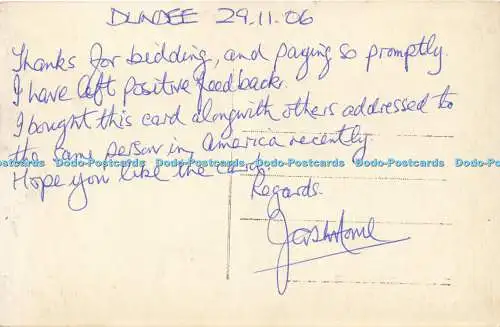 DUNDEE 29.11.06
Thanks for bidding, and paying so promptly.
I have left positive feedback.
I bought this card alongwith others addressed to
the same person in America recently
Dodo-Postcards Dodo-Postcards Dodo-Postcards Dodo-Postcards Dodo-Postcards Dodo-Postcards
Hope you like the card.
Regards.